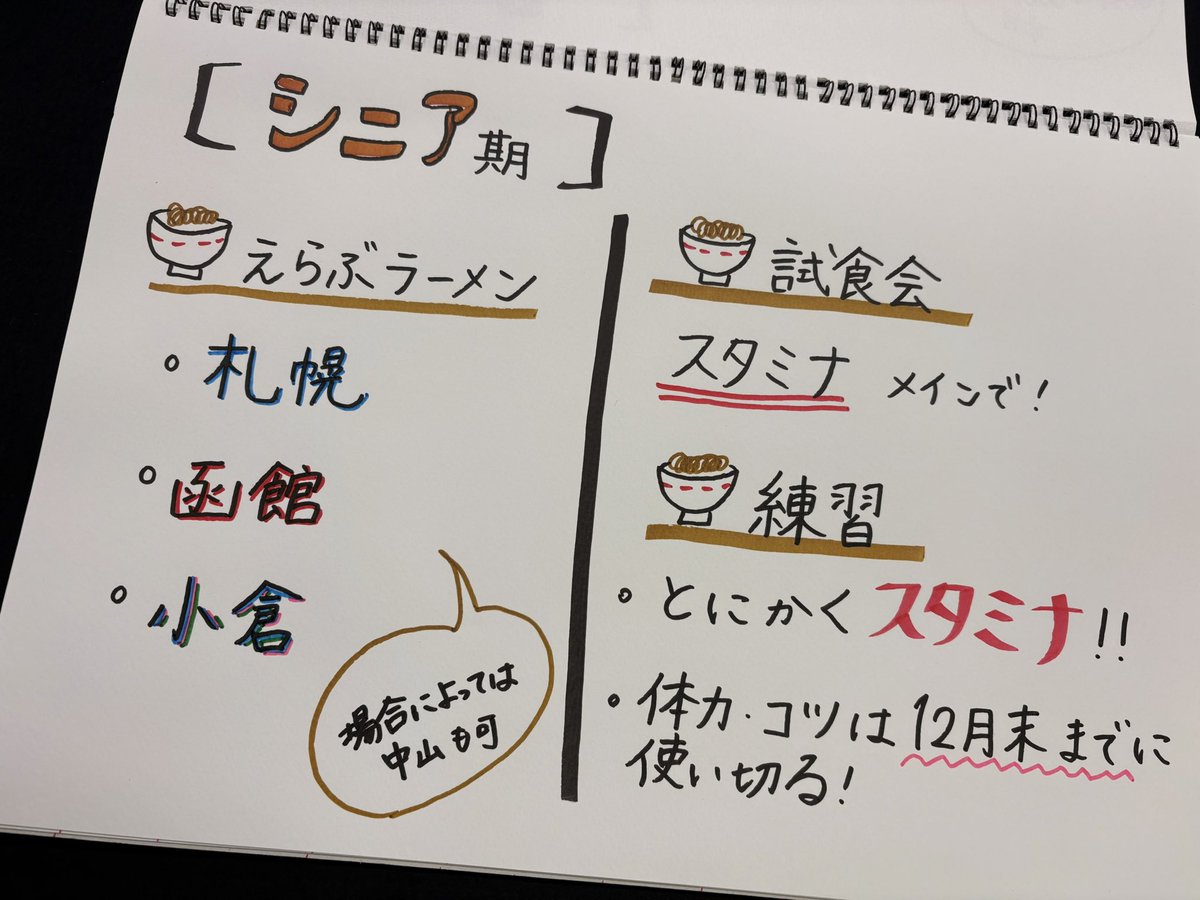 [シニア期]
えらぶラーメン
• 札幌
• 函館
• 小倉
場合によっては
中山も可
試食会
スタミナ メインで!
練習
• とにかくスタミナ!!
• 体力・コツは12月末までに
使い切る!